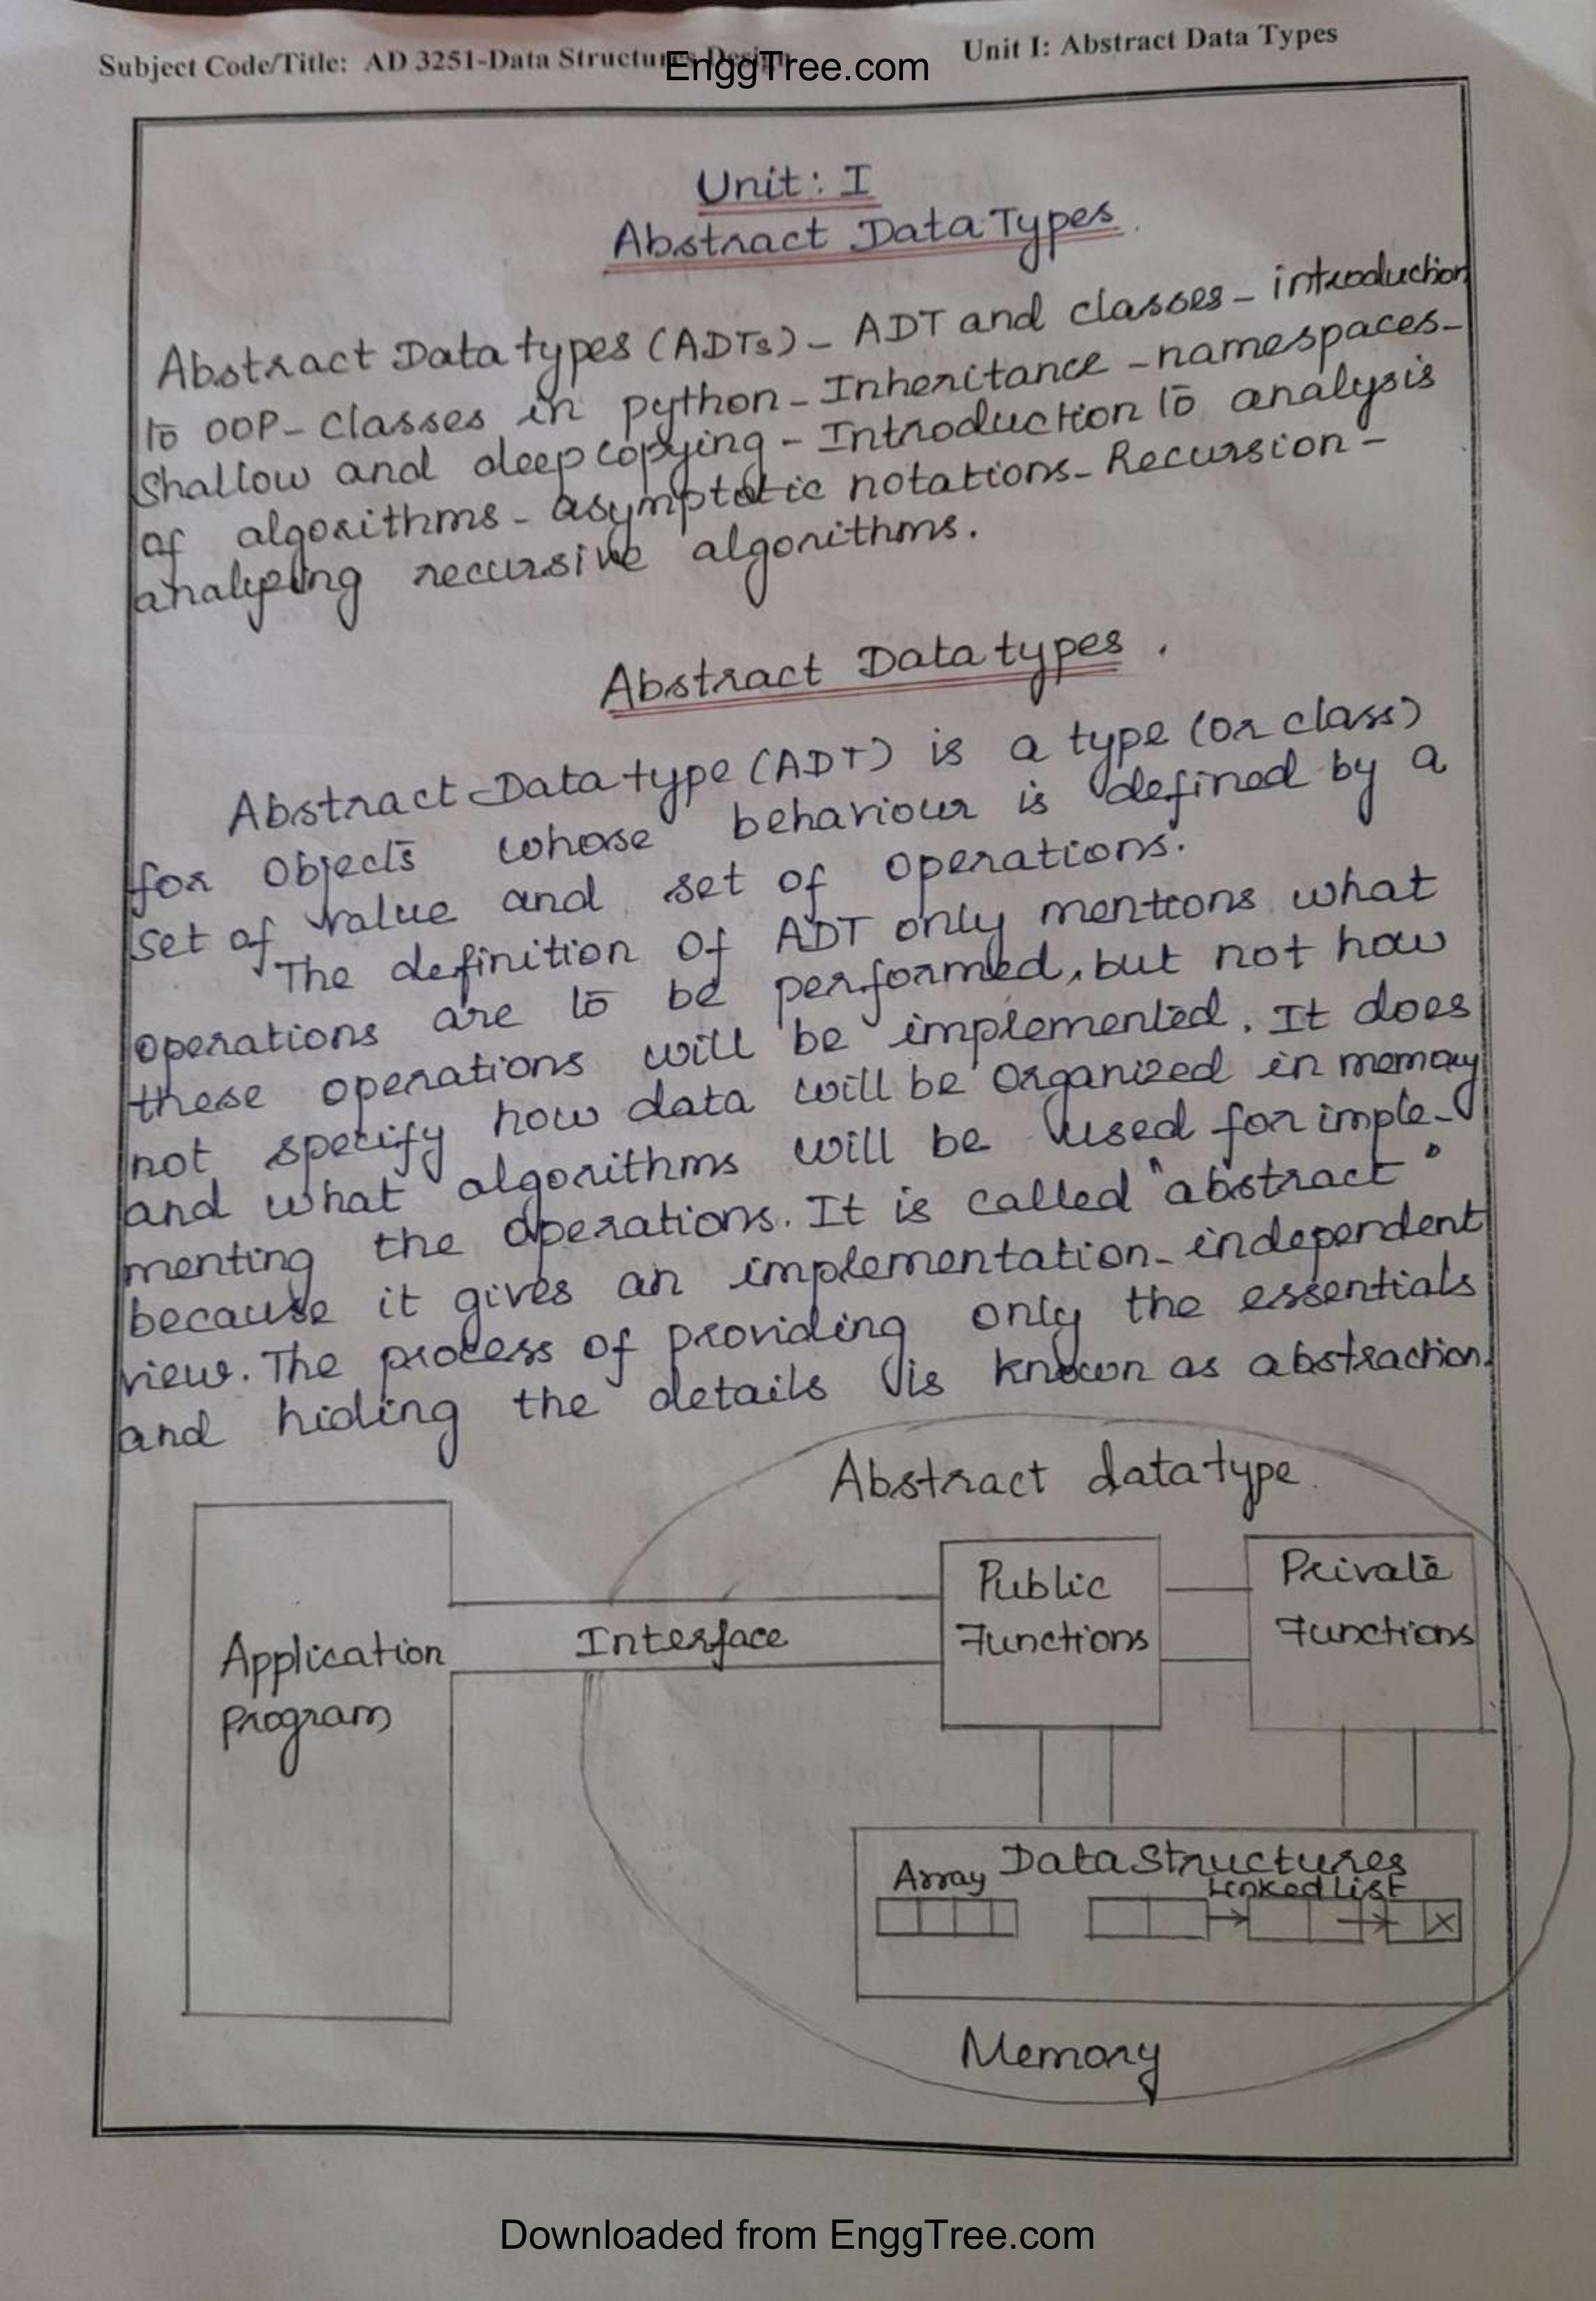 Subject Code/Title: AD 3251-Data Structures Design
EnggTree.com
Unit I: Abstract Data Types
Unit: I
Abstract Data Types.
Abstract Data types (ADTs) - ADT and classes - introduction
to OOP - Classes in python - Inheritance - namespaces -
Shallow and deep copying - Introduction to analysis
of algorithms - asymptotic notations - Recursion -
analyzing recursive algorithms.
Abstract Data types.
Abstract Data type (ADT) is a type (or class)
for Objects whose behaviour is defined by a
set of value and set of operations.
The definition of ADT only mentions what
operations are to be performed, but not how
these operations will be implemented. It does
not specify how data will be organized in memory
and what algorithms will be used for imple-
menting the operations. It is called "abstract"
because it gives an implementation-independent
view. The process of providing only the essentials
and hiding the details is known as abstraction.
Abstract datatype.
Application
program
Interface
Public
Functions
Private
Functions
Data Structures
Array
Linked List
Memory
Downloaded from EnggTree.com